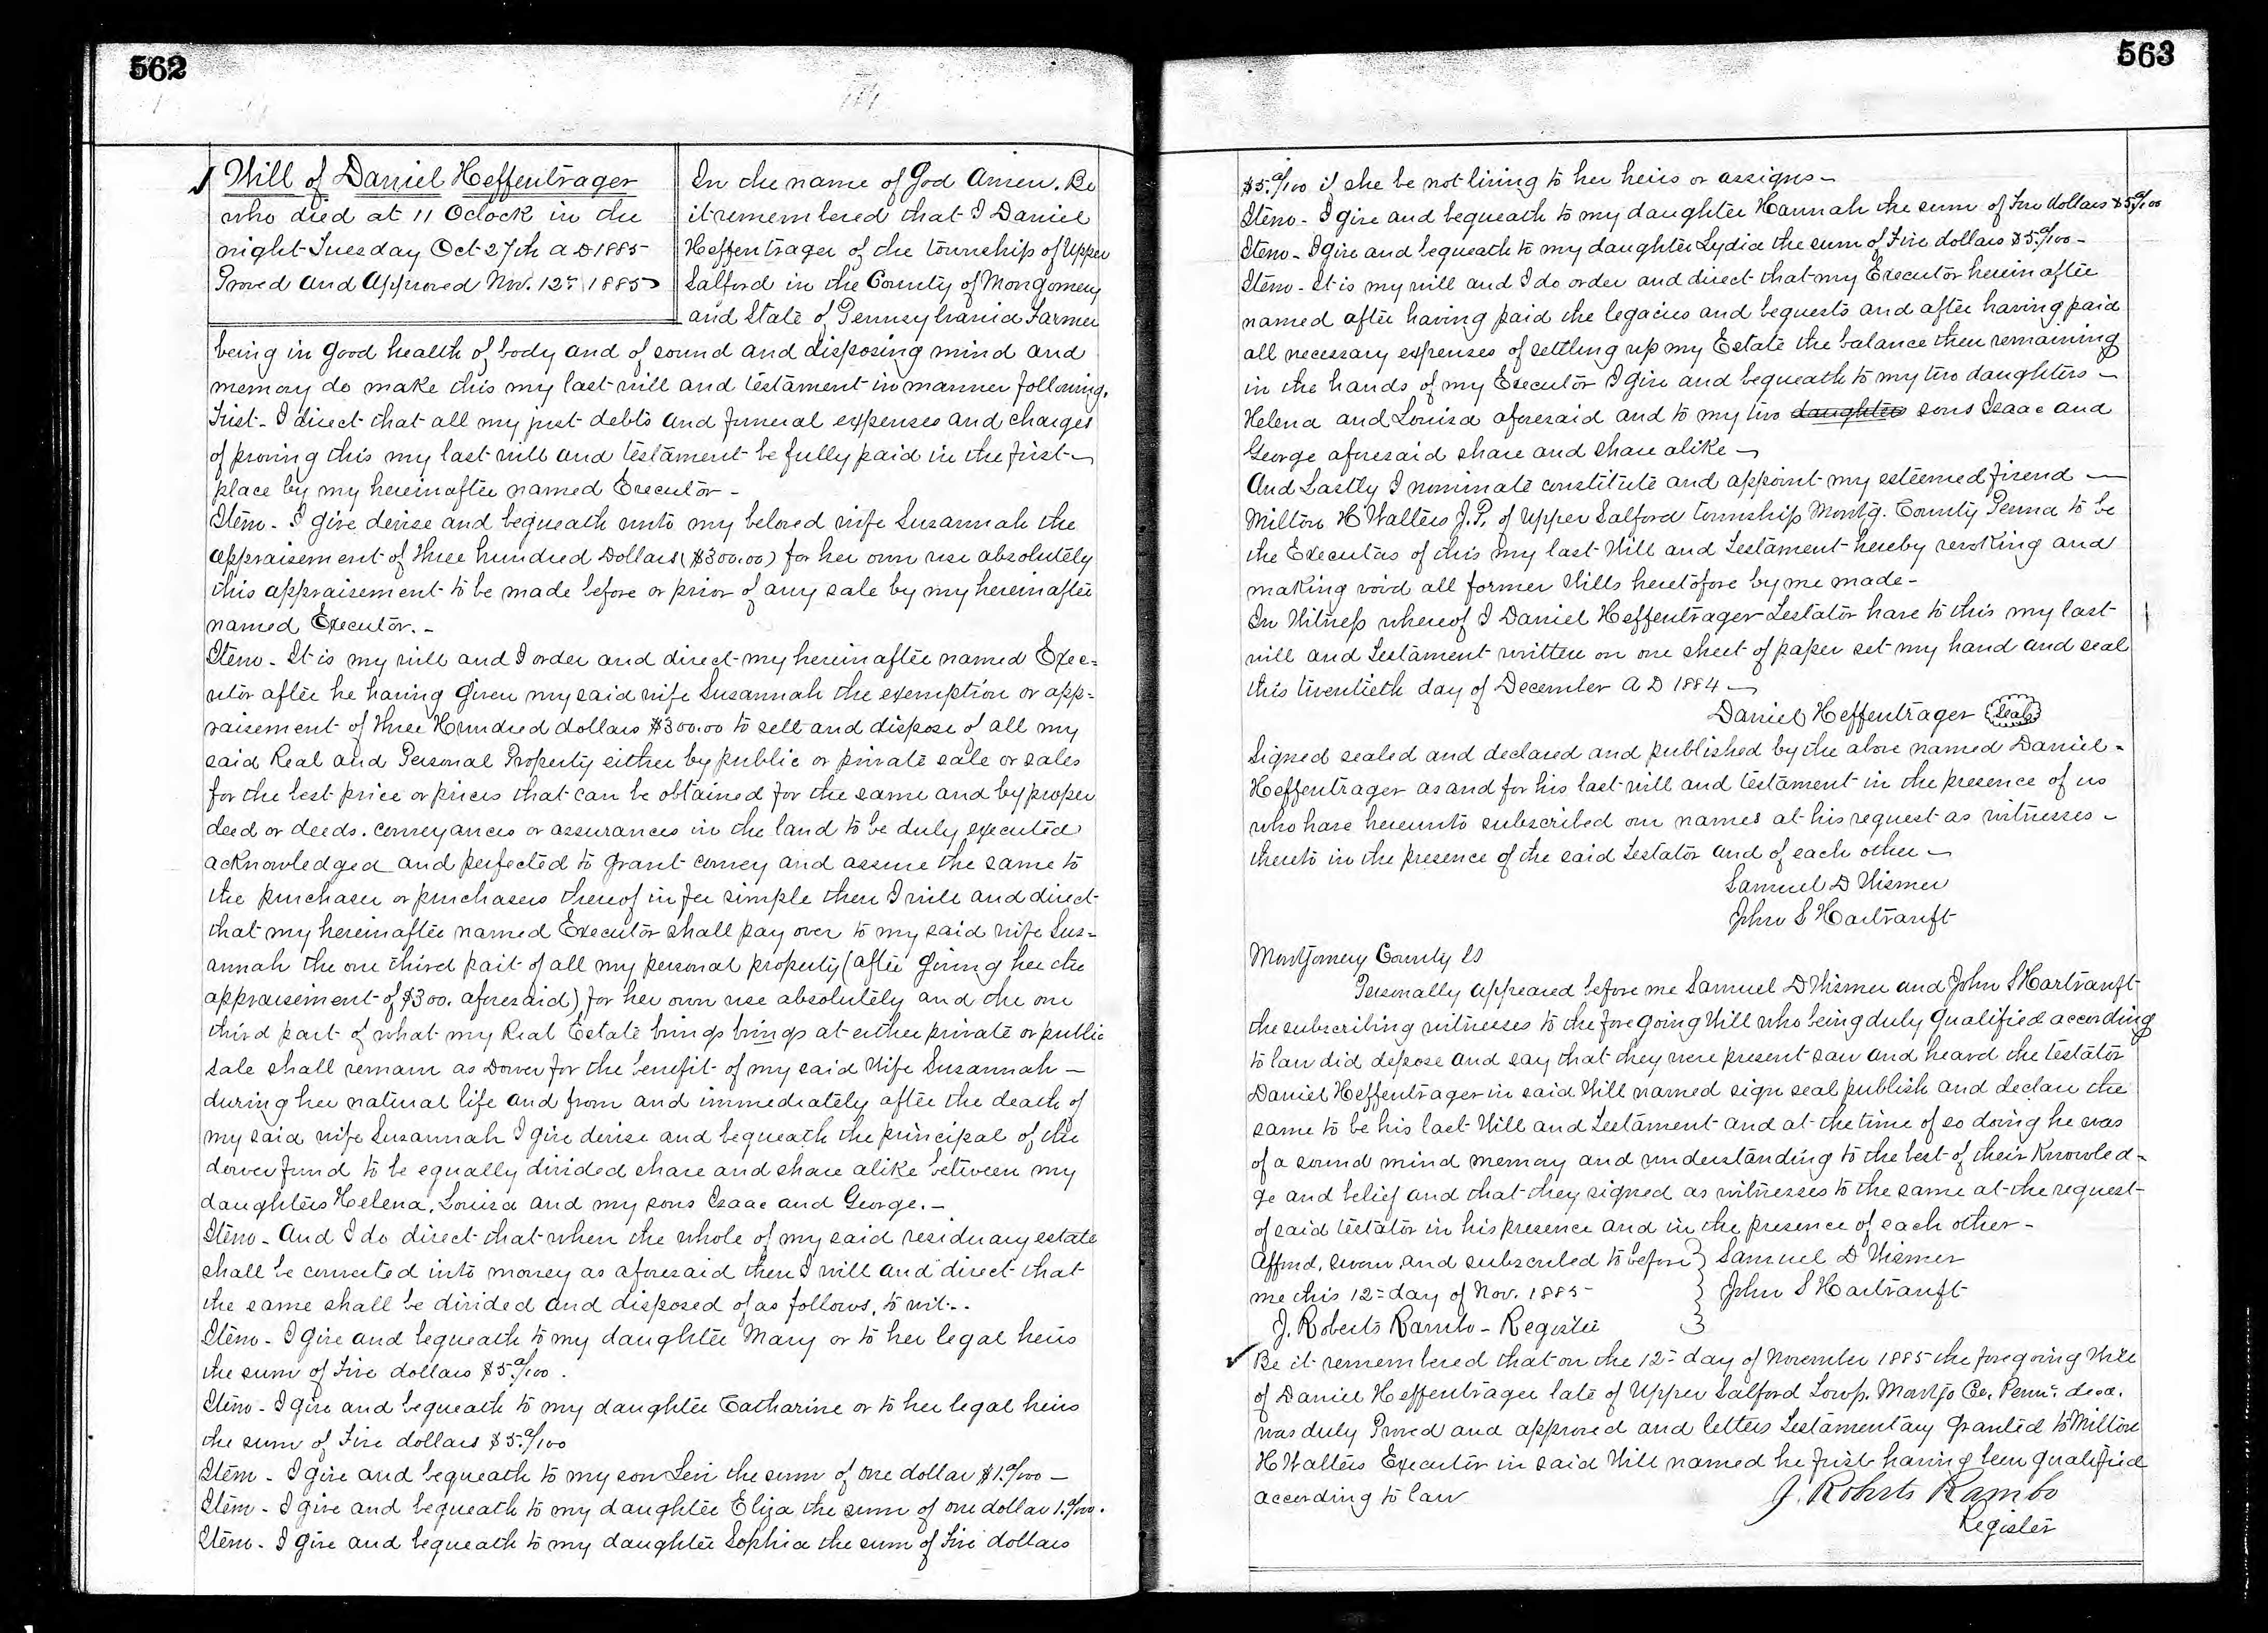 562
Will of Daniel Heffentrager
who died at 11 Oclock in the
night Tuesday Oct 27th AD 1885
Proved and Approved Nov. 12th 1885
In the name of God Amen. Be
it remembered that I Daniel
Heffentrager of the township of Upper
Salford in the County of Montgomery
and State of Pennsylvania Farmer
being in good health of body and of sound and disposing mind and
memory do make this my last will and testament in manner following.
First - I direct that all my just debts and funeral expenses and charges
of proving this my last will and testament be fully paid in the first
place by my hereinafter named Executor -
Item - I give devise and bequeath unto my beloved wife Susannah the
appraisement of three hundred Dollars ($300.00) for her own use absolutely
this appraisement to be made before or prior of any sale by my hereinafter
named Executor. -
Item - It is my will and I order and direct my hereinafter named Exec=
utor after he having given my said wife Susannah the exemption or app=
raisement of three Hundred dollars $300.00 to sell and dispose of all my
said Real and Personal Property either by public or private sale or sales
for the best price or prices that can be obtained for the same and by proper
deed or deeds. conveyances or assurances in the land to be duly executed
acknowledged and perfected to grant convey and assure the same to
the purchaser or purchasers thereof in fee simple then I will and direct
that my hereinafter named Executor shall pay over to my said wife Sus=
annah the one third part of all my personal property (after giving her the
appraisement of $300. aforesaid) for her own use absolutely and the one
third part of what my Real Estate brings brings at either private or public
sale shall remain as Dower for the benefit of my said Wife Susannah -
during her natural life and from and immediately after the death of
my said wife Susannah I give devise and bequeath the principal of the
dower fund to be equally divided share and share alike between my
daughters Helena, Louisa and my sons Isaac and George. -
Item - And I do direct that when the whole of my said residuary estate
shall be converted into money as aforesaid then I will and direct that
the same shall be divided and disposed of as follows, to wit -.
Item - I give and bequeath to my daughter Mary or to her legal heirs
the sum of Five dollars $5.0/100.
Item - I give and bequeath to my daughter Catharine or to her legal heirs
the sum of Five dollars $5.0/100
Item - I give and bequeath to my son Levi the sum of one dollar $1.0/100 -
Item - I give and bequeath to my daughter Eliza the sum of one dollar 1.0/100.
Item - I give and bequeath to my daughter Sophia the sum of Five dollars
563
$5.0/100 if she be not living to her heirs or assigns -
Item - I give and bequeath to my daughter Hannah the sum of Five dollars $5.0/100
Item - I give and bequeath to my daughter Lydia the sum of Five dollars $5.0/100 -
Item - It is my will and I do order and direct that my Executor hereinafter
named after having paid the legacies and bequests and after having paid
all necessary expenses of settling up my Estate the balance then remaining
in the hands of my Executor I give and bequeath to my two daughters -
Helena and Louisa aforesaid and to my two daughters sons Isaac and
George aforesaid share and share alike -
And Lastly I nominate constitute and appoint my esteemed friend -
Milton H Walters J.P. of Upper Salford township Montg. County Penna to be
the Executors of this my last Will and Testament hereby revoking and
making void all former Wills heretofore by me made -
In Witness whereof I Daniel Heffentrager Testator have to this my last
will and Testament written on one sheet of paper set my hand and seal
this twentieth day of December A D 1884 -
Daniel Heffentrager Seal
Signed sealed and declared and published by the above named Daniel -
Heffentrager as and for his last will and testament in the presence of us
who have hereunto subscribed our names at his request as witnesses -
thereto in the presence of the said Testator and of each other -
Samuel D Wismer
John S Hartranft
Montgomery County SS
Personally appeared before me Samuel D Wismer and John S Hartranft
the subscribing witnesses to the foregoing Will who being duly qualified according
to law did depose and say that they were present saw and heard the testator
Daniel Heffentrager in said Will named sign seal publish and declare the
same to be his last Will and Testament and at the time of so doing he was
of a sound mind memory and understanding to the best of their Knowled-
ge and belief and that they signed as witnesses to the same at the request
of said testator in his presence and in the presence of each other -
Affmd, sworn and subscribed to before } Samuel D Wismer
me this 12th day of Nov. 1885 } John S Hartranft
J. Roberts Rambo - Register
Be it remembered that on the 12th day of November 1885 the foregoing Will
of Daniel Heffentrager late of Upper Salford Towp. Montg. Co. Penna. decd.
was duly Proved and approved and letters Testamentary granted to Milton
H Walters Executor in said Will named he first having been qualified
according to law
J. Roberts Rambo
Register